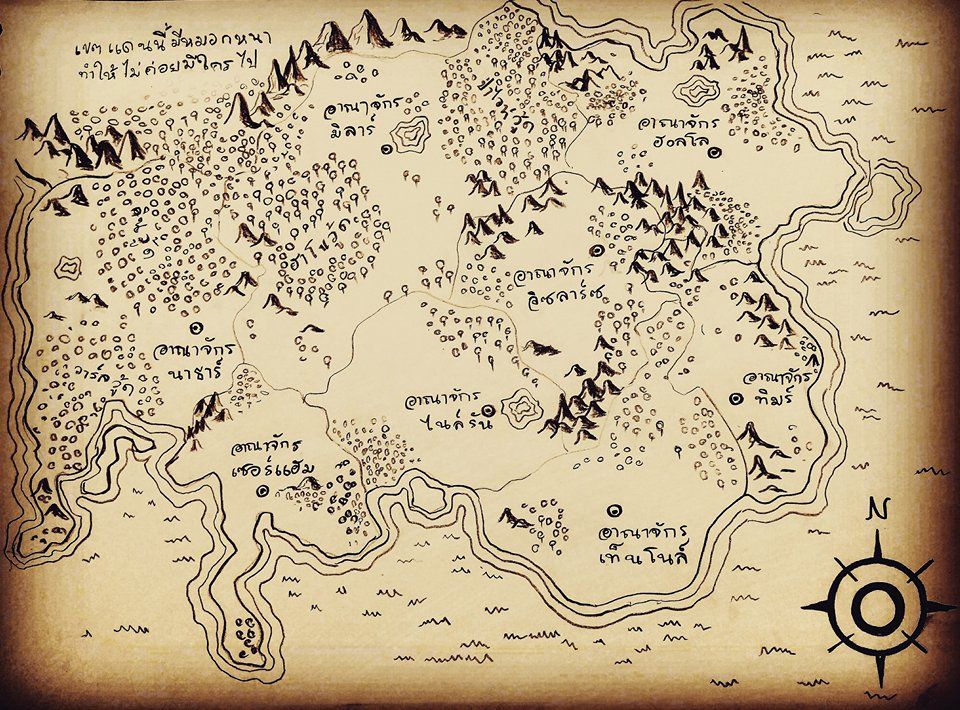 เขตแดนนี้มีหมอกหนา
ทำให้ไม่ค่อยมีใครไป
อาณาจักร
มิลาร์
อาณาจักร
ฮอลโล
ฮาโนวัด
อาณาจักร
ลิซลาร์ซ
อาณาจักร
นาชาร์
อาณาจักร
ไนล์รัน
อาณาจักร
ทิมร์
อาณาจักร
เซอร์แฮม
อาณาจักร
เท็นโนล์
N